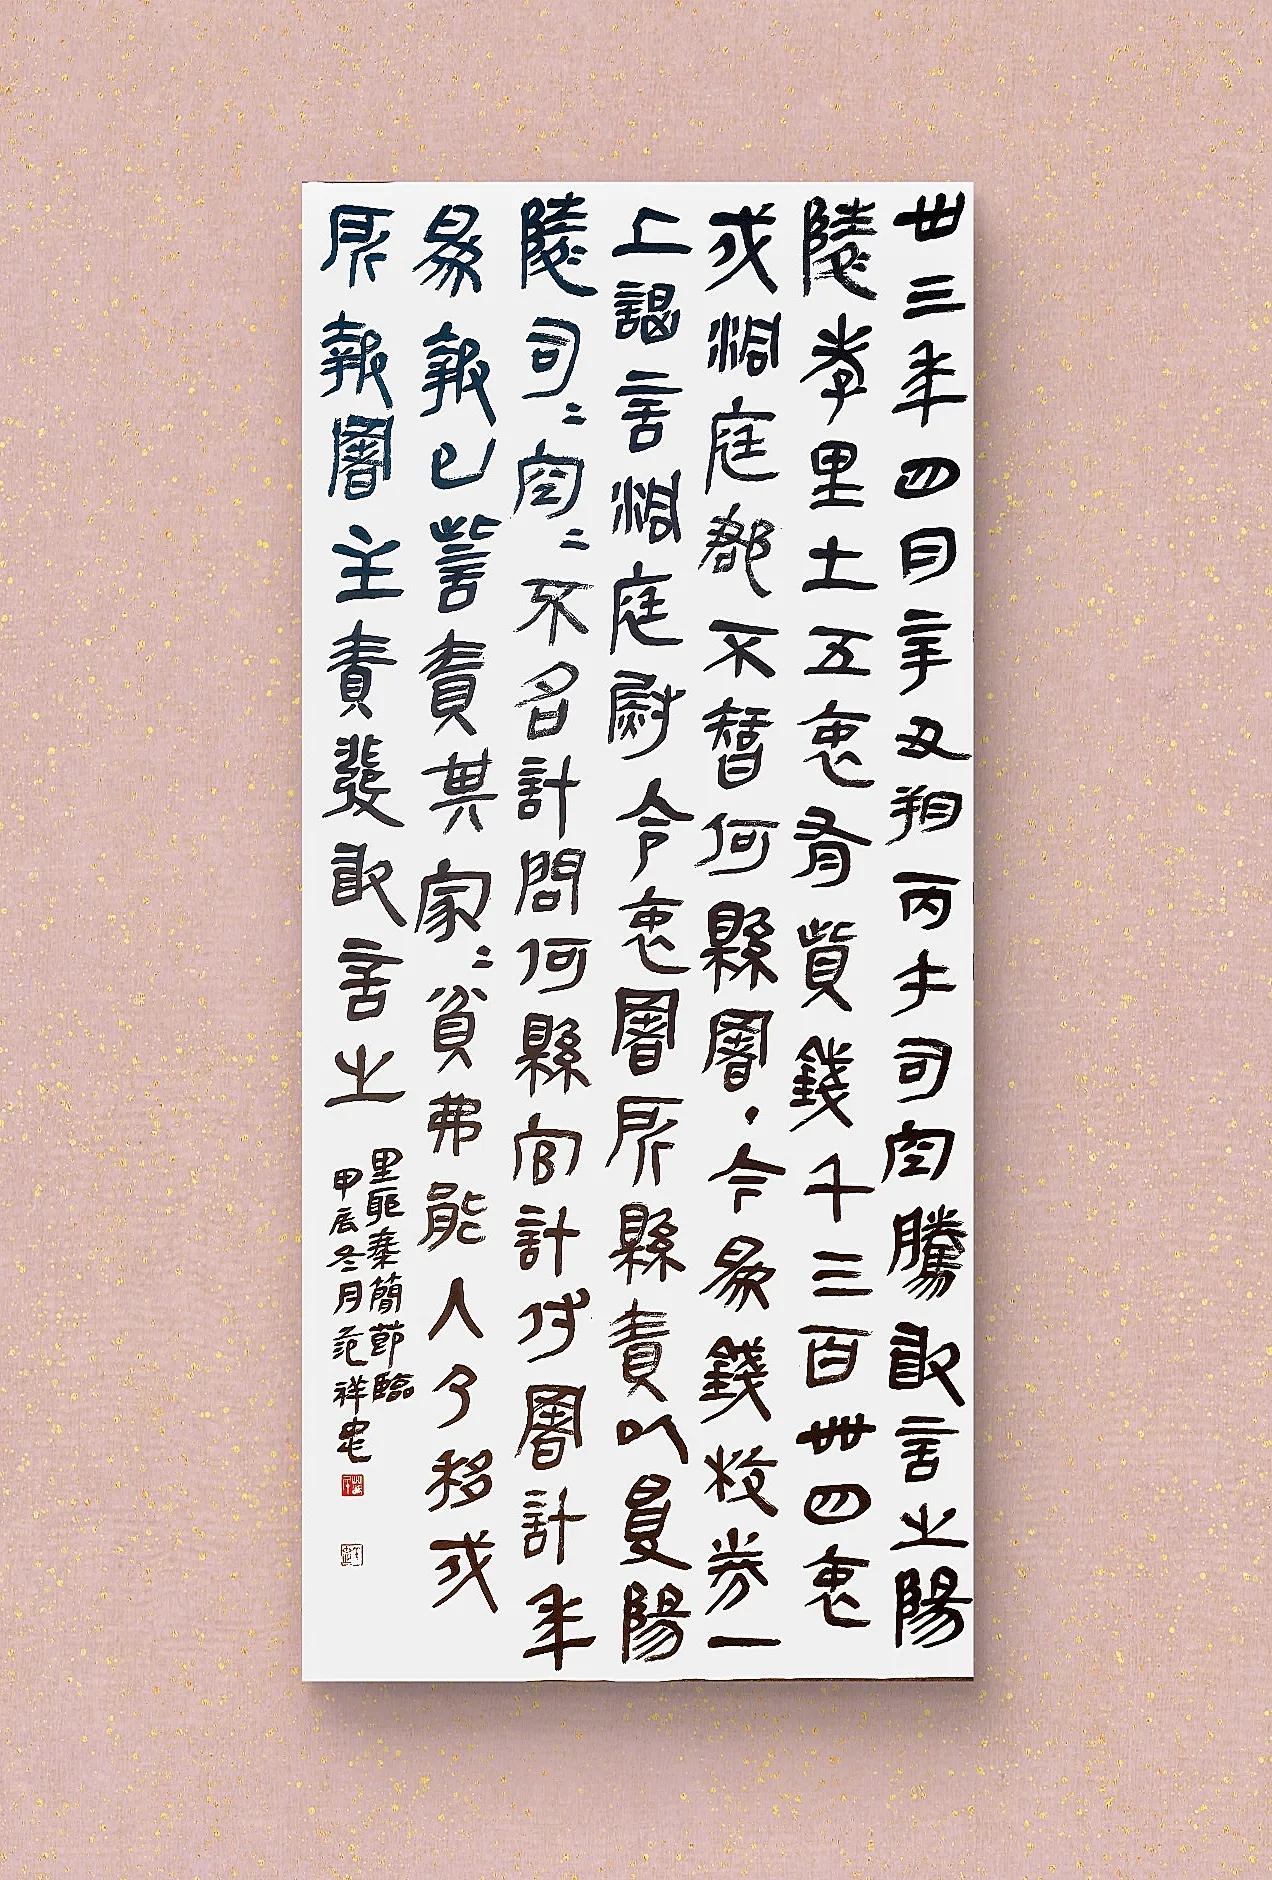 卅三年四月辛丑朔丙午司空騰敢言之陽
陵孝里士五衷有貲錢千三百卌四衷
戍洞庭郡不智何縣署·今為錢校券一
上謁言洞庭尉令衷署所縣責以受陽
陵司〓空〓不名計問何縣官計付署計年
為報已訾責其家〓貧弗能入乃移戍
所報署主責發敢言之
里耶秦簡節臨
甲辰冬月范祥忠